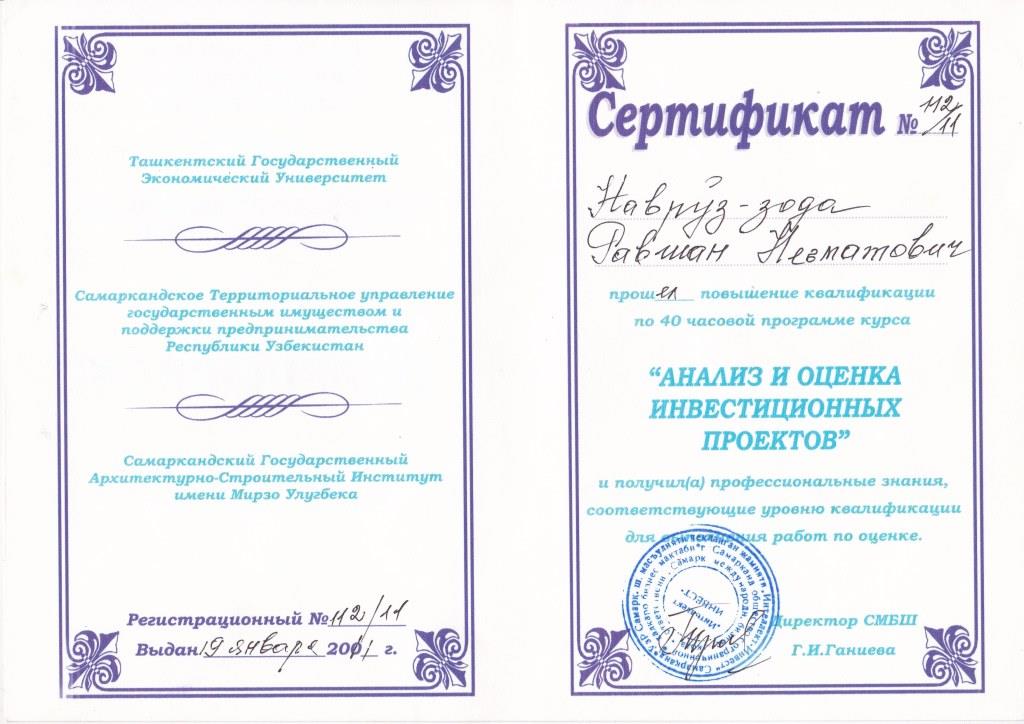 Ташкентский Государственный
Экономический Университет
Самаркандское Территориальное управление
государственным имуществом и
поддержки предпринимательства
Республики Узбекистан
Самаркандский Государственный
Архитектурно-Строительный Институт
имени Мирзо Улугбека
Регистрационный № 112/11
Выдан 19 января 2001 г.
Сертификат № 112/11
Навруз-зода
Равшан Негматович
прошел повышение квалификации
по 40 часовой программе курса
“АНАЛИЗ И ОЦЕНКА
ИНВЕСТИЦИОННЫХ
ПРОЕКТОВ”
и получил(а) профессиональные знания,
соответствующие уровню квалификации
для работ по оценке.
Директор СМБШ
Г.И.Ганиева